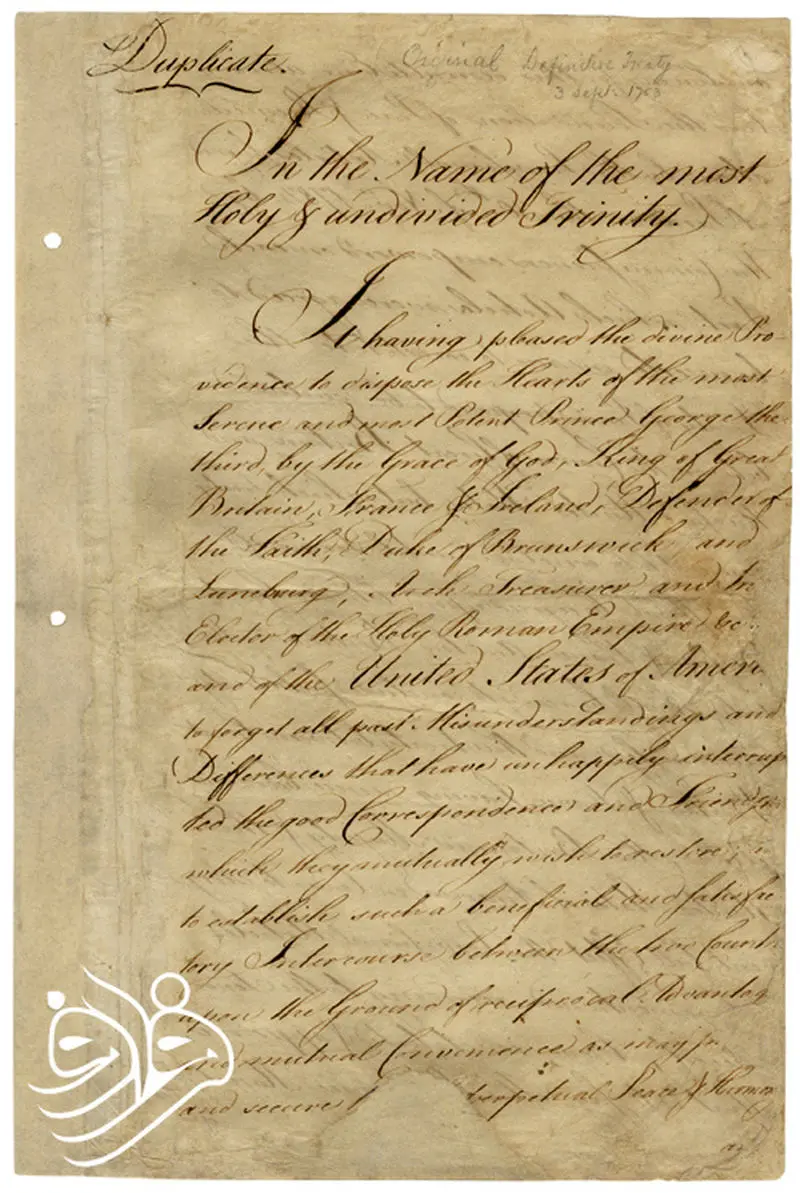 Duplicate.
Original Definitive Treaty
3 Sept. 1783
In the Name of the most
Holy & undivided Trinity.
It having pleased the divine Pro-
vidence to dispose the Hearts of the most
Serene and most Potent Prince George the
third, by the Grace of God, King of Great
Britain, France & Ireland, Defender of
the Faith, Duke of Brunswick and
Luneburg, Arch Treasurer and
Elector of the Holy Roman Empire &c.
and of the United States of Ameri
to forget all past Misunderstandings and
Differences that have unhappily interrup
ted the good Correspondence and Friends
which they mutually wish to restore;
to establish such a beneficial and satisfac
tory Intercourse between the two Countr
upon the Ground of reciprocal Advantag
and mutual Convenience as may
and secure perpetual Peace & Harmon